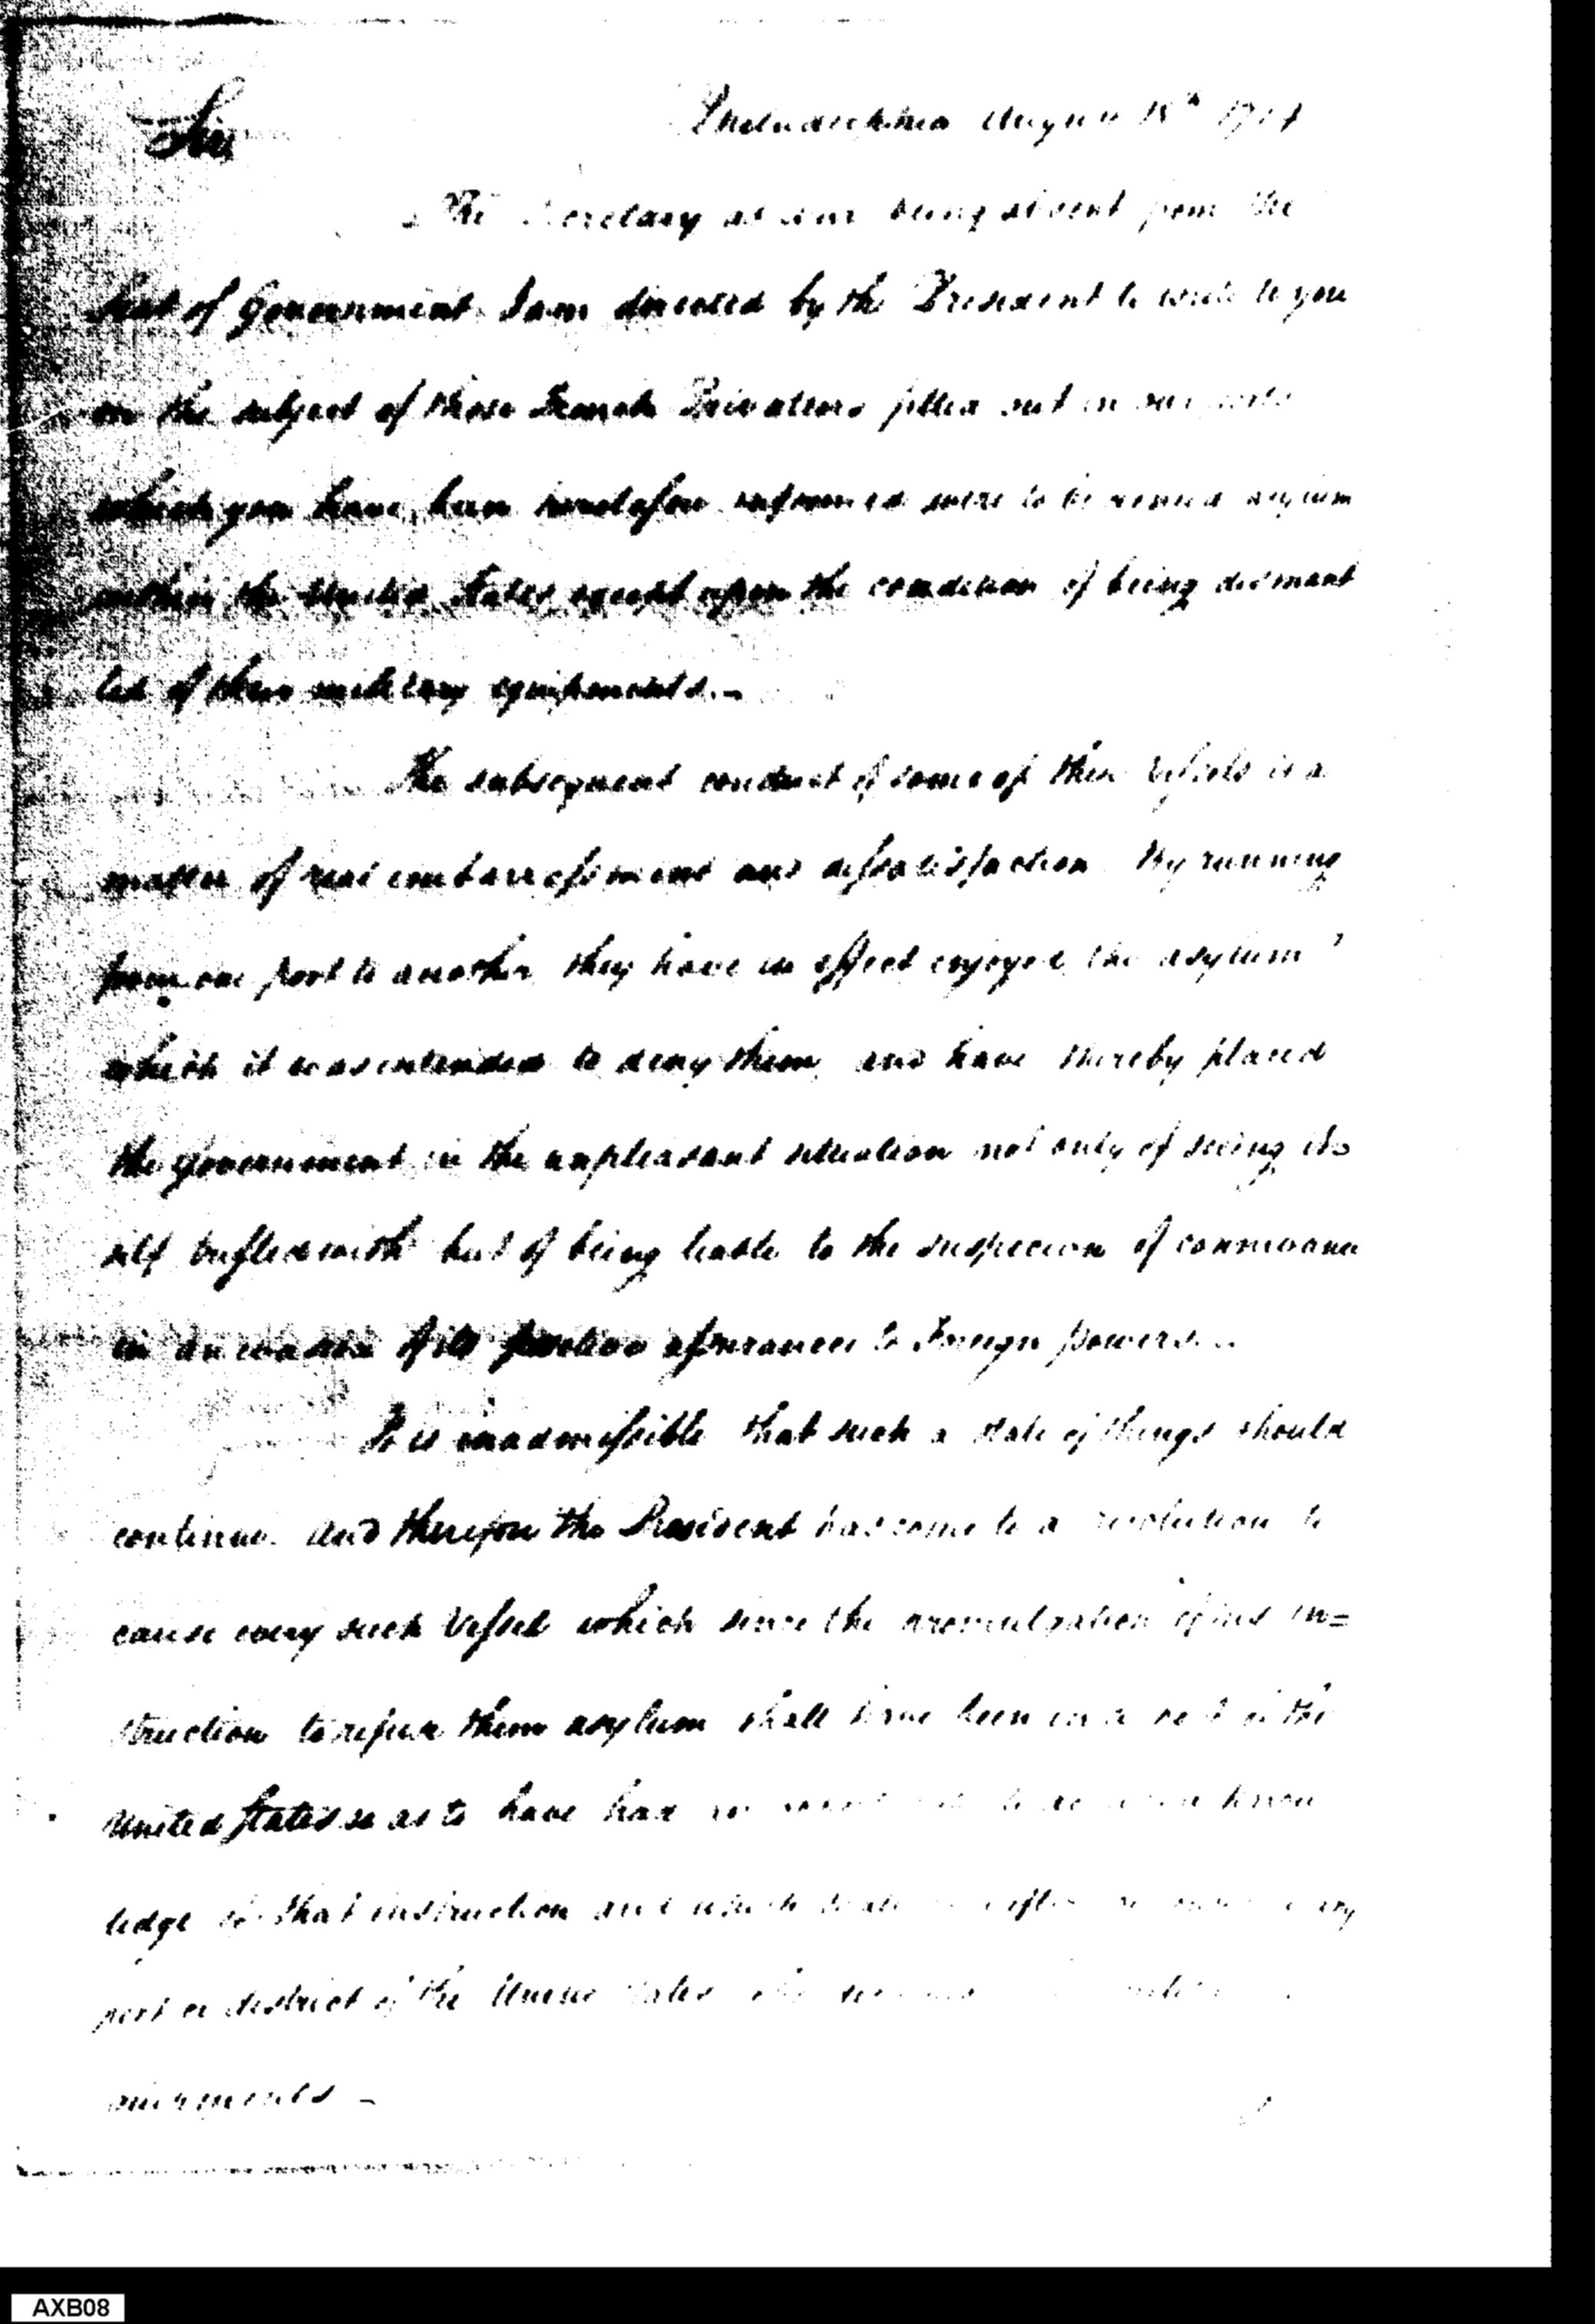 Philadelphia August 18th 1794
Sir
The Secretary at War being absent from the
Seat of Government I am directed by the President to write to you
on the subject of those French Privateers fitted out in our ports
which you have been heretofore informed were to be denied asylum
within the United States except upon the condition of being dismant
led of their military equipments.-
The subsequent conduct of some of these Vessels is a
matter of real embarrassment and dissatisfaction By running
from one port to another they have in effect enjoyed the asylum
which it was intended to deny them, and have thereby placed
the Government in the unpleasant situation not only of seeing its
self trifled with but of being liable to the suspicion of connivance
in an evasion of its positive assurances to Foreign powers.
It is inadmissible that such a state of things should
continue. And therefore the President has come to a resolution to
cause every such Vessel which since the promulgation of his in=
struction to refuse them asylum shall have been in a port of the
United States so as to have had to know
ledge of that instruction and which any
port or district of the United States
armaments -
AXB08